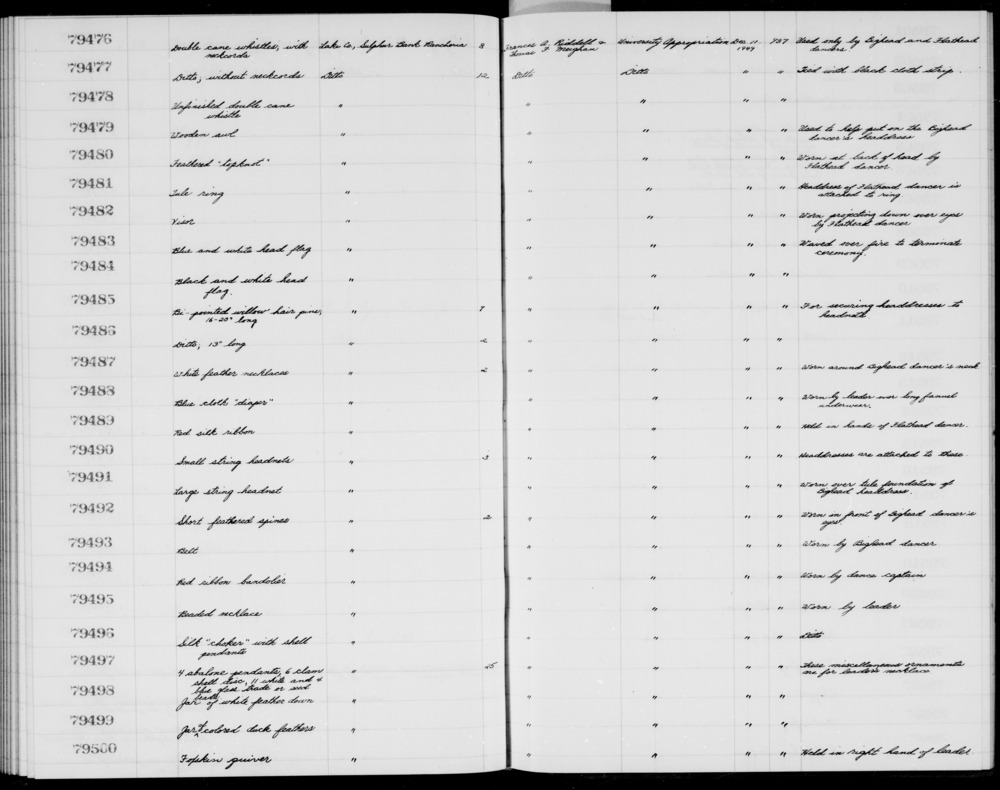 79476 Double cane whistles, with Lake Co, Sulphur Bank Rancheria 8 Frances A. Riddell & University Appropriation Dec. 11 787 Used only by Bighead and Flathead
neckcords Meighan 1949 dancers
79477 Ditto, without neckcords Ditto 12 Ditto Ditto " " Tied with black cloth strip.
79478 Unfinished double cane " " " " "
whistle
79479 Wooden awl " " " " " Used to help put on the Bighead
dancer's headdress
79480 Feathered "topknot" " " " " " Worn at back of head by
Flathead dancer
79481 Tule ring " " " " " Headdress of Flathead dancer is
attached to ring.
79482 Visor " " " " " Worn projecting down over eyes
by Flathead dancer
79483 Blue and white head flag " " " " " Waved over fire to terminate
ceremony.
79484 Black and white head " " " " "
flag.
79485 Bi-pointed willow hair pins, " 7 " " " " For securing headdresses to
16-20" long headnets
79486 Ditto, 13" long " 2 " " " "
79487 White feather necklaces " 2 " " " " Worn around Bighead dancer's neck
79488 Blue cloth "diaper" " " " " " Worn by leader over long flannel
underwear.
79489 Red silk ribbon " " " " " Held in hands of Flathead dancer.
79490 Small string headnets " 3 " " " " Headdresses are attached to these
79491 Large string headnet " " " " " Worn over tule foundation of
Bighead headdress.
79492 Short feathered spines " 2 " " " " Worn in front of Bighead dancer's
eyes
79493 Belt " " " " " Worn by Bighead dancer
79494 Red ribbon bandolier " " " " " Worn by dance captain
79495 Beaded necklace " " " " " Worn by leader
79496 Silk "choker" with shell " " " " " Ditto
pendants
79497 4 abalone pendants, 6 clam " 25 " " " " These miscellaneous ornaments
shell disc, 11 white and 4 are for leader's necklace
blue glass trade or seed
beads
79498 Jar of white feather down " " " " "
79499 Jar of colored duck feathers " " " " "
79500 Foxskin quiver " " " " " Held in right hand of leader